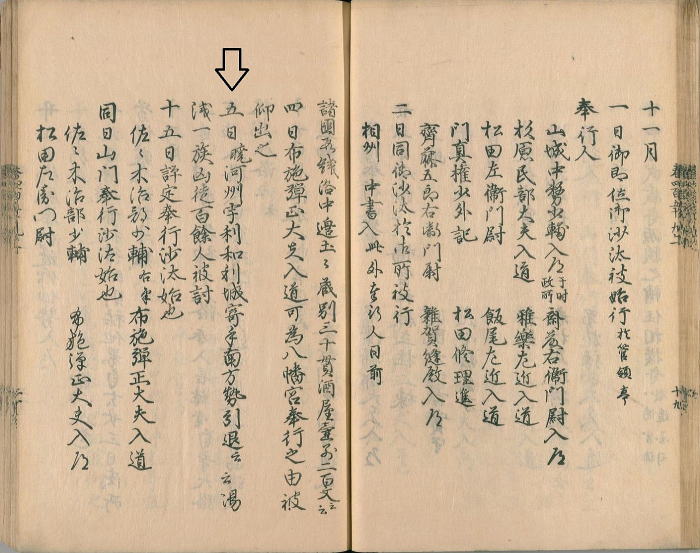 十一月
一日御即位御沙汰被始行於管領亭
奉行人
山城中務少輔入道于時政所 斎藤右衛門尉入道
杉原民部大夫入道 雅樂左近入道
松田左衛門尉 飯尾左近入道
門真権少外記 松田修理進
齊藤五郎右衛門尉 雜賀縫殿入道
二日同御沙汰於御所被行
相州 中書入 此外奉行人同前
諸國段銭洛中邊土ミ蔵別三十貫酒屋壷別二百文云云
四日布施弾正大夫入道可為八幡宮奉行之由被
仰出之
五日暁河州宇利和利城寄手南方勢引退云云湯
浅一族凶徒百餘人被討
十五日評定奉行沙汰始也
佐々木治部少輔 布施弾正大夫入道
同日山門奉行沙汰始也
佐々木治部少輔 布施弾正大夫入道
松田左衛門尉